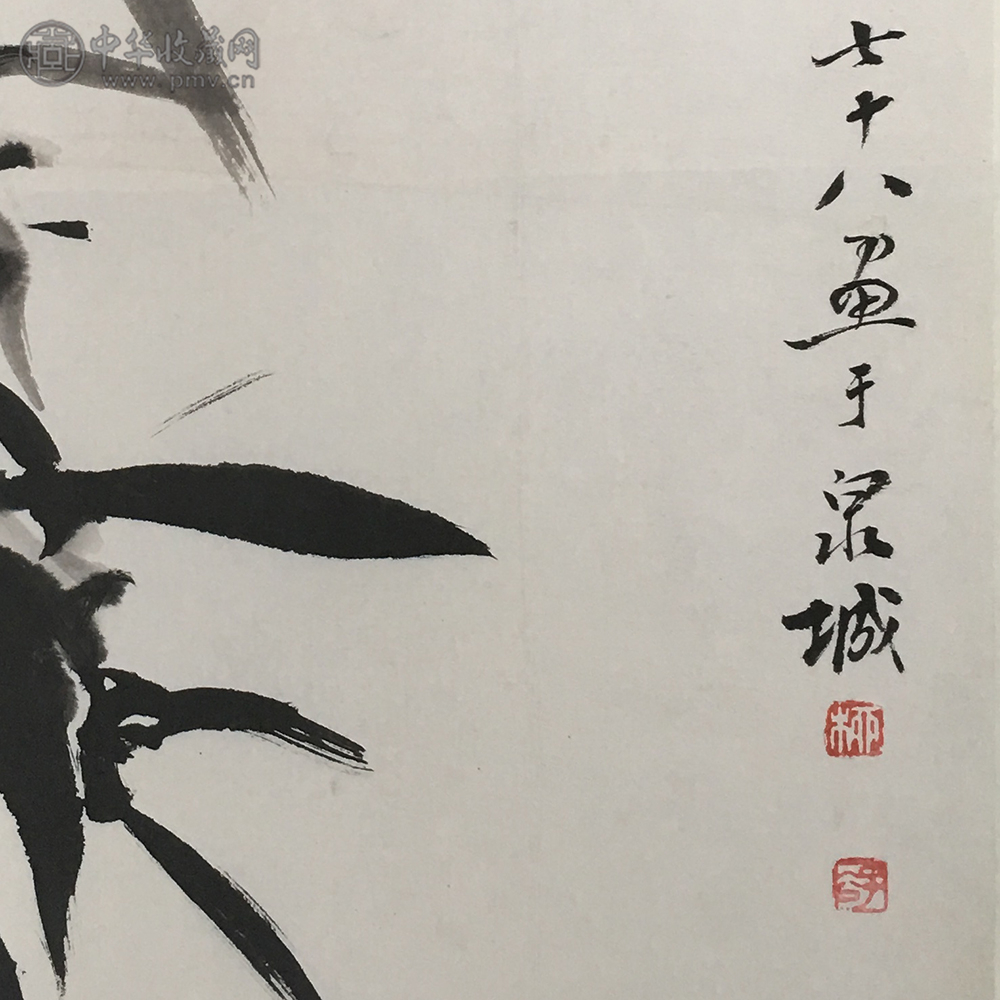 中华收藏网
www.pmv.cn
七十八画于泉城
柳